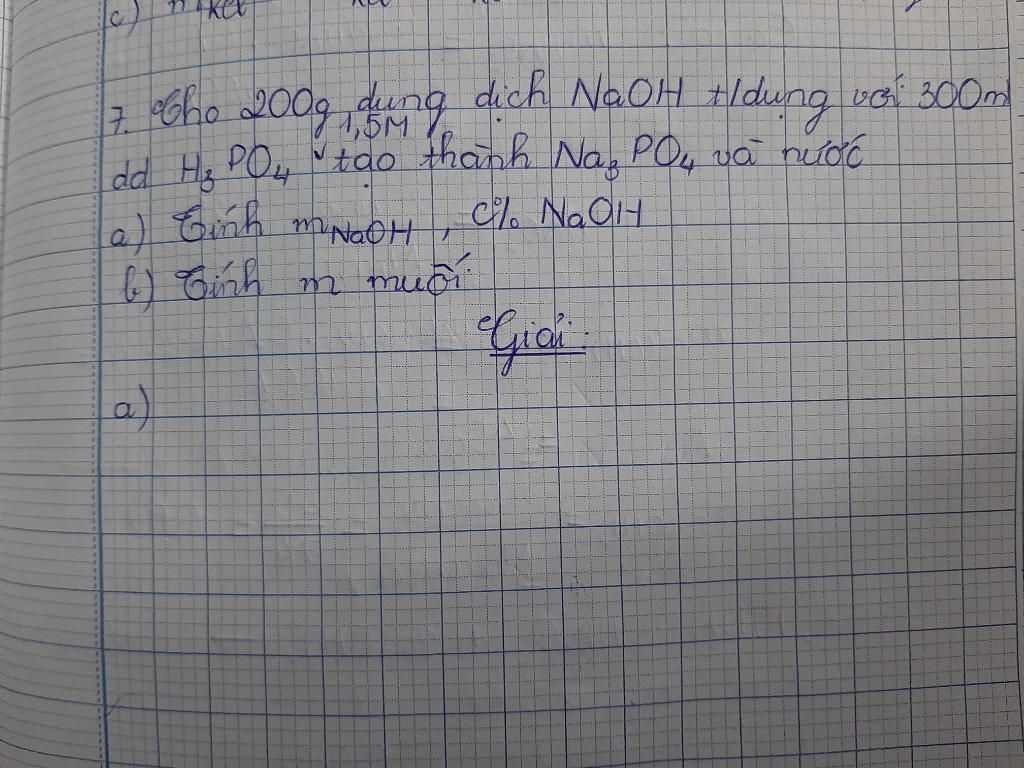 c)
7. Cho 200g dung dịch NaOH t/dụng với 300ml
1,5M
dd H3PO4 ˅ tạo thành Na3PO4 và nước
a) Tính mNaOH, C% NaOH
b) Tính m muối
Giải:
a)